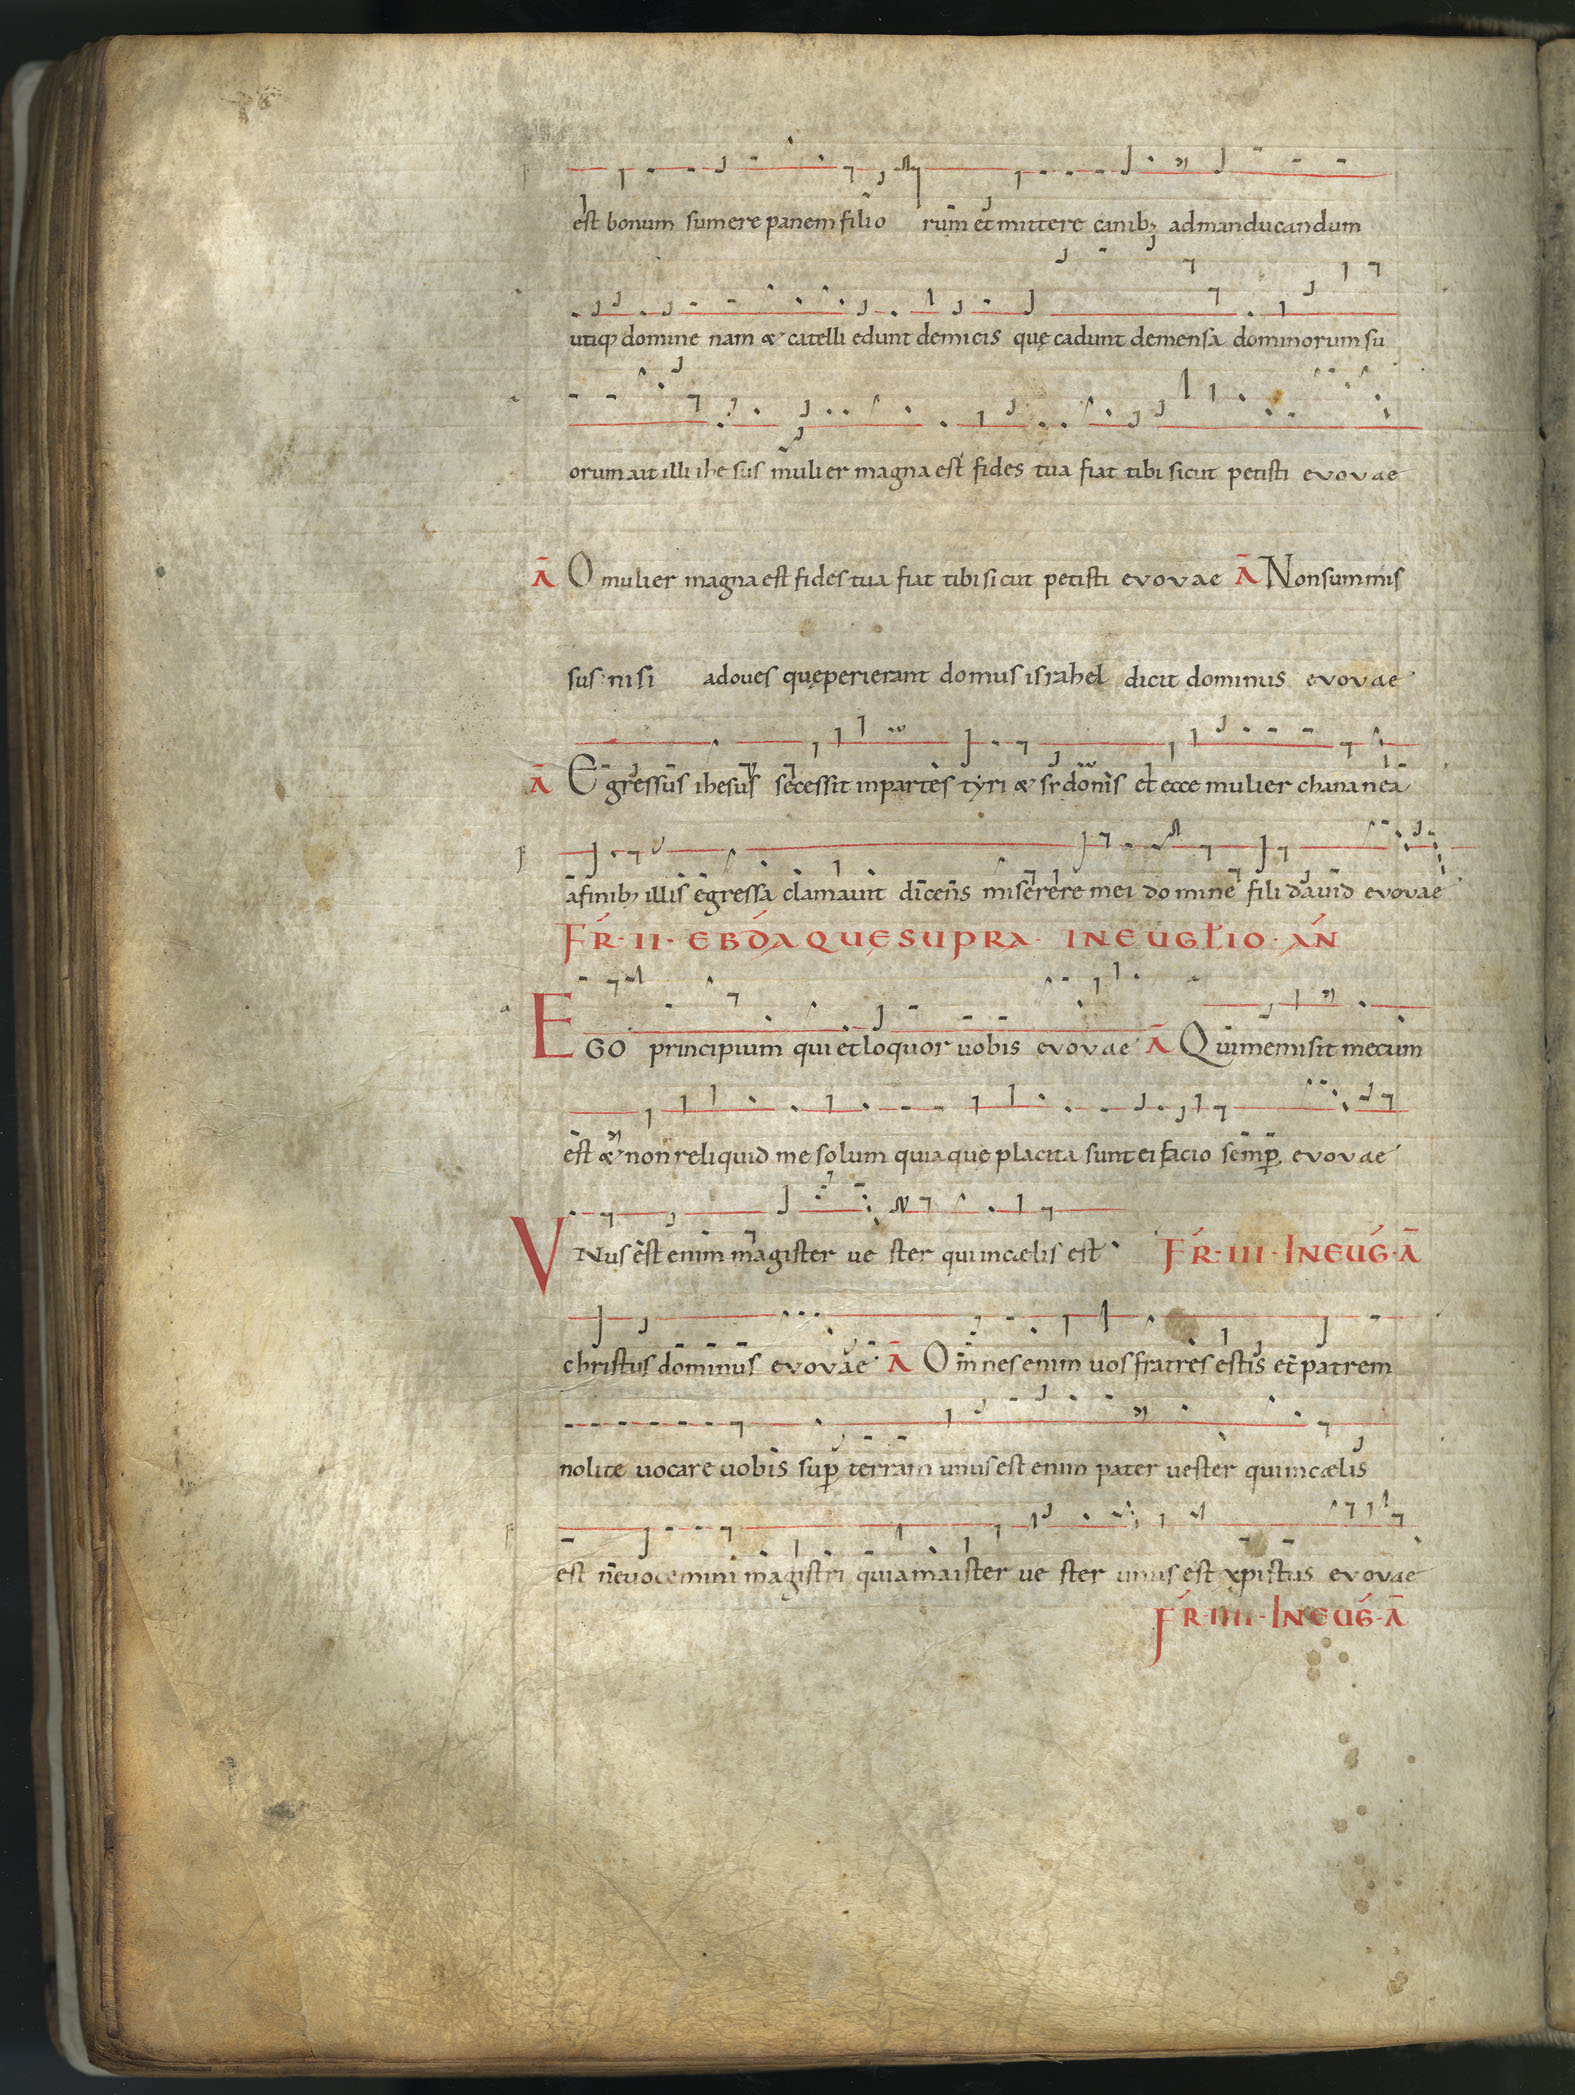 est bonum sumere panem filio rum et mittere canib; ad manducandum
utiq; domine nam & catelli edunt demicis quę cadunt demensa dominorum su
orum ait illi ihe sus mulier magna est fides tua fiat tibi sicut petisti evovae
Ā O mulier magna est fides tua fiat tibi sicut petisti evovae Ā Non sum mis
sus nisi ad oues quę perierant domus israhel dicit dominus evovae
Ā Egressus ihesus secessit in partes tyri & sydonis et ecce mulier chananea
a finib; illis egressa clamauit dicens miserere mei domine fili dauid evovae
FR · II · EBDA QUĘ SUPRA · IN EUGLIO · AN
EGO principium qui et loquor uobis evovae Ā Qui me misit mecum
est & non reliquid me solum quia quę placita sunt ei facio semp evovae
VNus est enim magister ue ster qui incælis est FR · III · IN EUG · Ā
christus dominus evovae Ā Omnes enim uos fratres estis et patrem
nolite uocare uobis sup terram unus est enim pater uester qui incælis
est ne uocemini magistri quia maister ue ster unus est xpistus evovae
FR · IIII · IN EUG · Ā